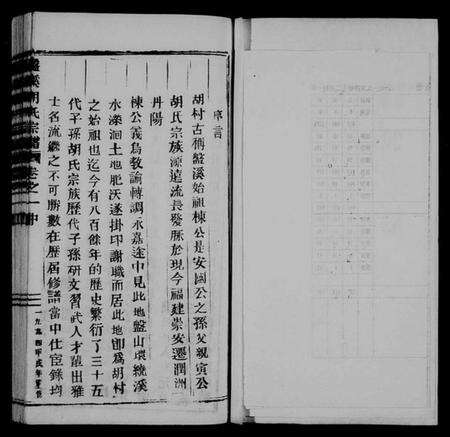 序言
胡村古稱盤溪始祖棟公是安國公之孫父親寅公
胡氏宗族源遠流長發脈於現今福建崇安遷潤洲
丹陽
棟公義烏教諭轉調永嘉途中見此地盤山環繞溪
水瀠洄土地肥沃遂掛印謝職而居此地卽爲胡村
之始祖也迄今有八百餘年的歷史繁衍了三十五
代子孫胡氏宗族歷代子孫研文習武人才輩出雅
士名流繼之不可勝數在歷屆修譜當中仕宦錄均
盤溪胡氏宗譜 卷之一 中